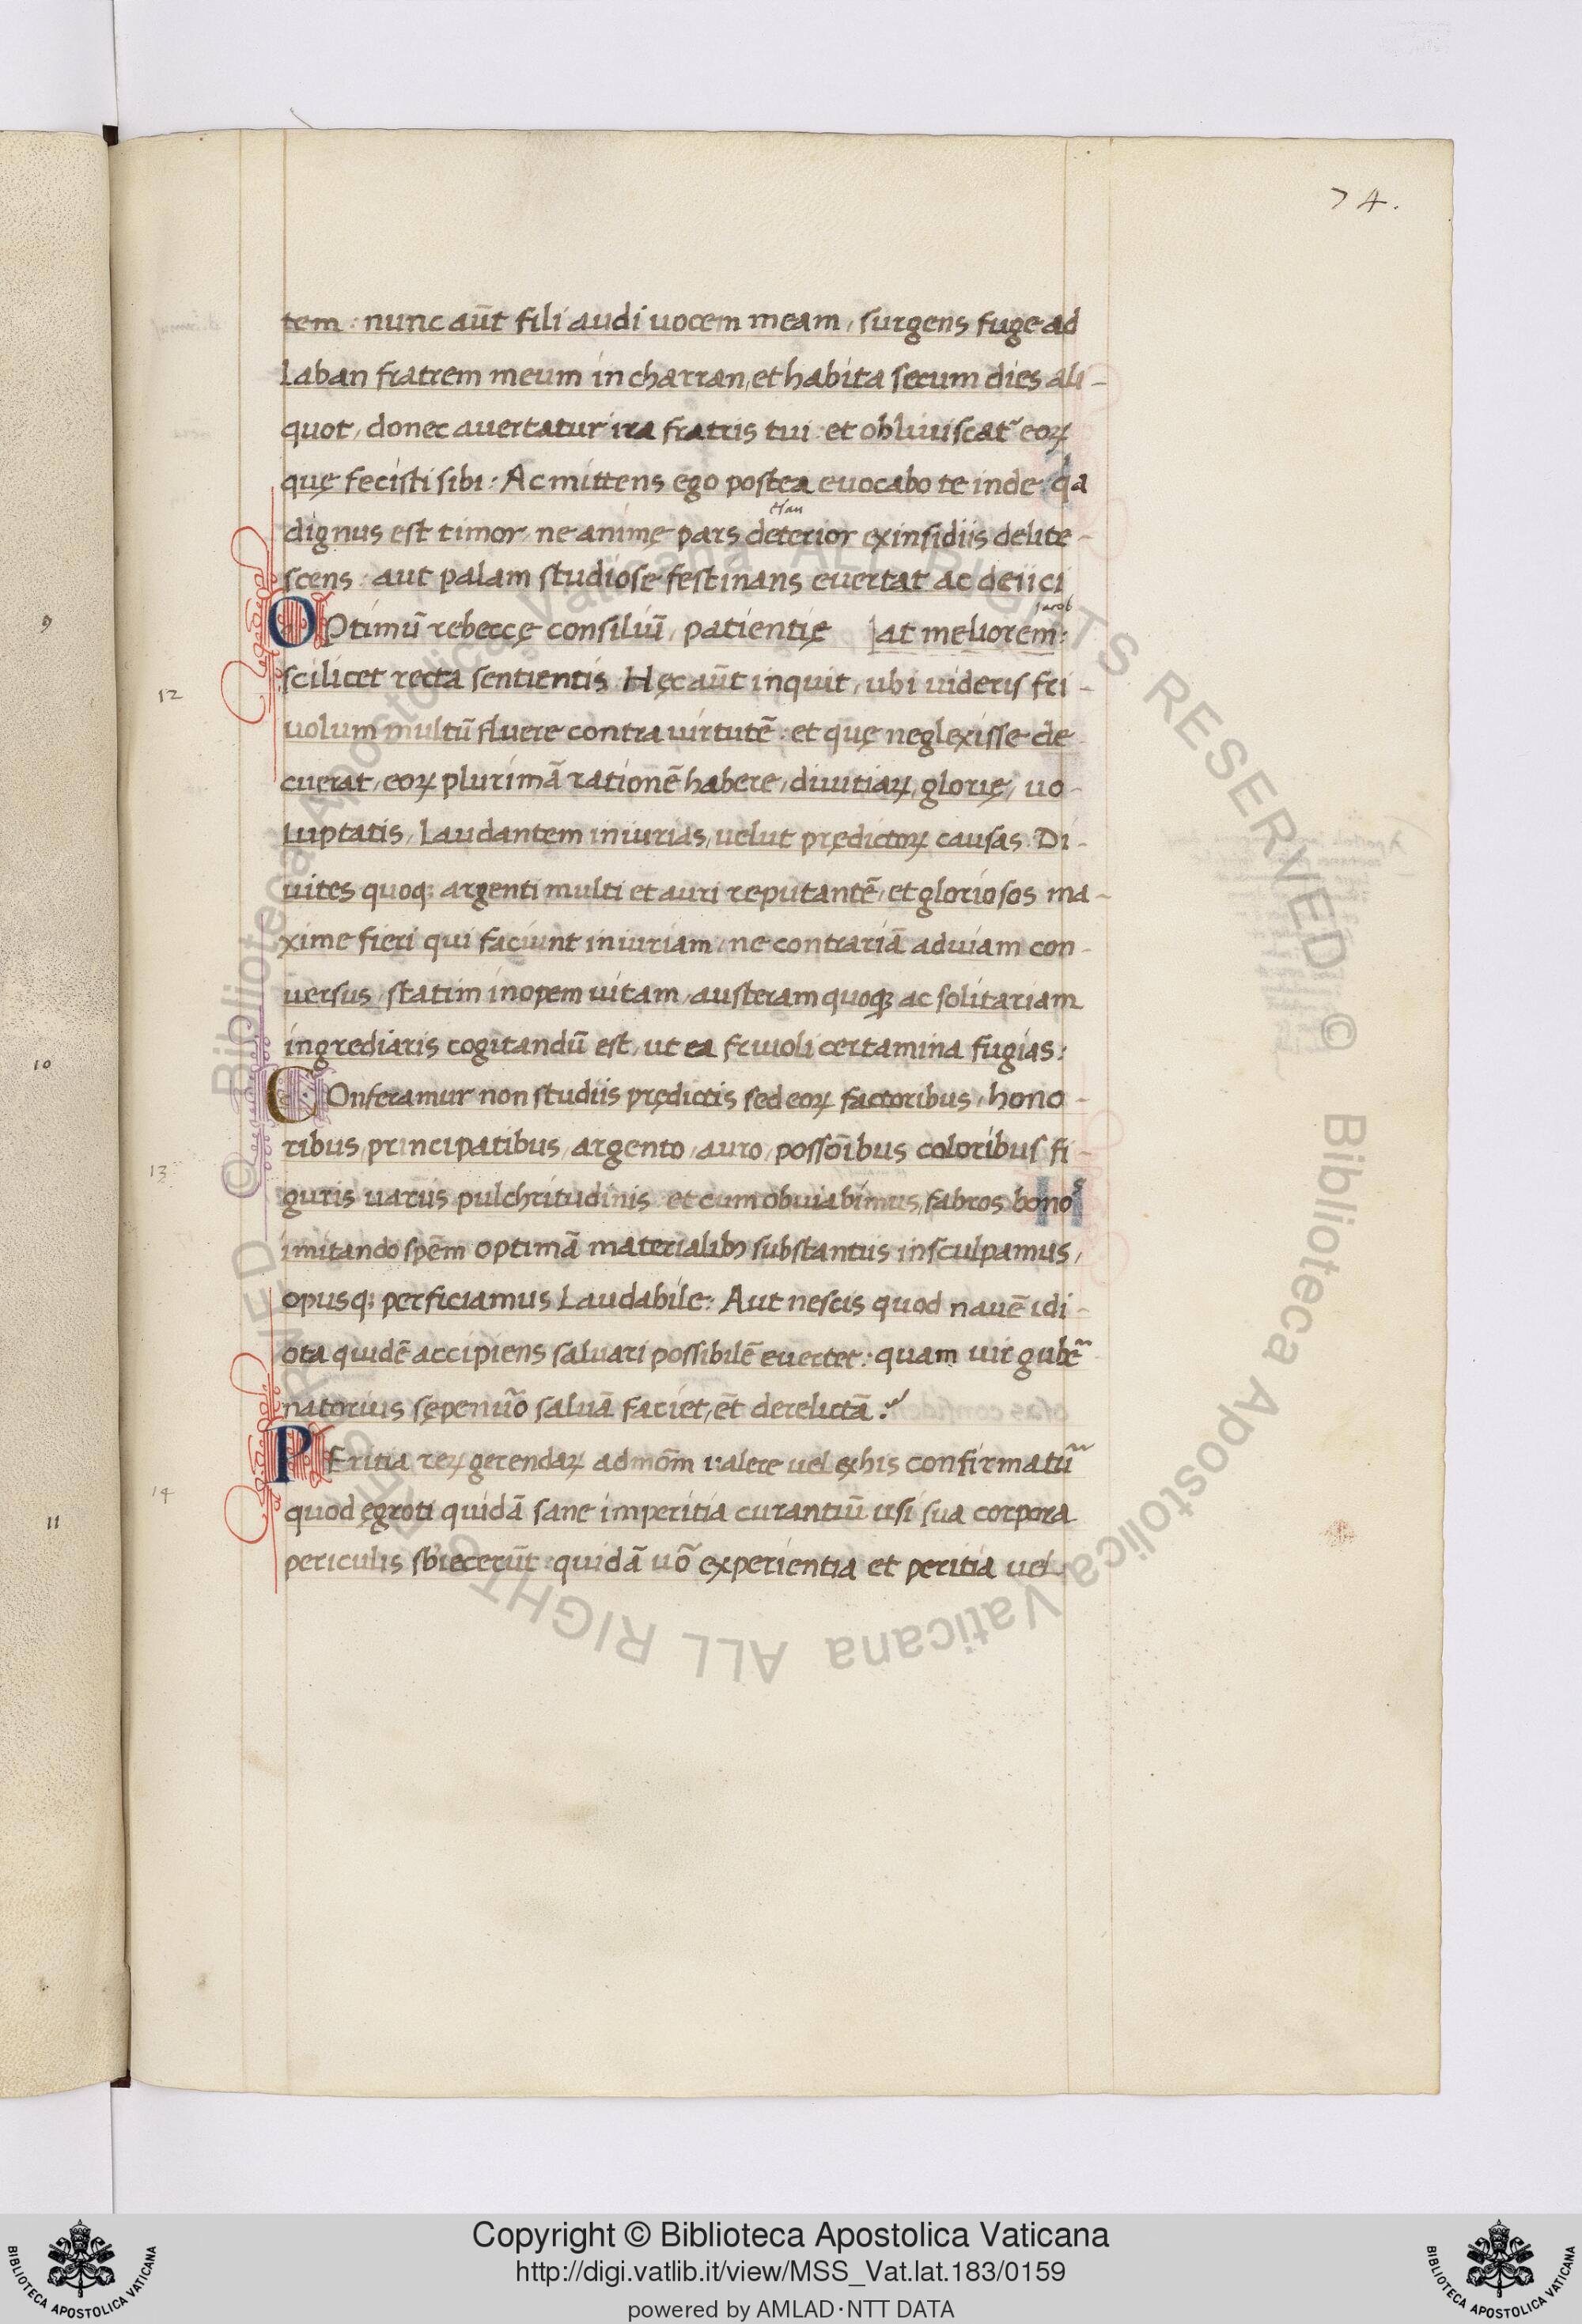 74.
tem: nunc aūt fili audi uocem meam, surgens fuge ad
Laban fratrem meum in charran, et habita secum dies ali-
quot, donec auertatur ira fratris tui: et obliuiscat᷑ eoꝝ
quę fecisti sibi: Ac mittens ego postea euocabo te inde: qa
dignus est timor, ne animę pars deterior ex insidiis delite-
scens: aut palam studiose festinans euertat ac deiici
Jacob
9
OPtimū rebeccę consiliū, patientię at meliorem:
scilicet recta sentientis. Hęc aūt inquit, ubi uideris fri-
12
uolum multū fluere contra uirtutē: et quę neglexisse de
cuerat, eoꝝ plurimā rationē habere, diuitiaꝝ, glorię, uo-
luptatis, Laudantem iniurias, uelut prędictoꝝ causas. Di-
uites quoq; argenti multi et auri reputantē, et gloriosos ma-
xime fieri qui faciunt iniuriam, ne contrariā ad uiam con-
uersus, statim inopem uitam, austeram quoq; ac solitariam
ingrediaris cogitandū est, ut ea friuoli certamina fugias:
10
COnferamur non studiis prędictis sed eoꝝ factoribus, hono-
ribus, principatibus, argento, auro, possōibus coloribus fi-
13
guris uariis pulchritudinis et cum obuiabimus, fabros bonos
imitando spēm optimā materialibꝫ substantiis insculpamus,
opusq; perficiamus Laudabile: Aut nescis quod nauē idi-
ota quidē accipiens saluari possibilē euertet: quam uir gub̄e
natorius sępenūo saluā faciet, ēt derelictā:
PEritia reꝝ gerendaꝝ admōm ualere uel ex his confirmatū
14
quod ęgroti quidā sane imperitia curantiū usi sua corpora
11
periculis sb̄iecerūt: quidā uō experientia et peritia uel
© Biblioteca Apostolica Vaticana ALL RIGHTS RESERVED © Biblioteca Apostolica Vaticana ALL RIGHTS RESERVED
Copyright © Biblioteca Apostolica Vaticana
http://digi.vatlib.it/view/MSS_Vat.lat.183/0159
powered by AMLAD·NTT DATA
BIBLIOTECA APOSTOLICA VATICANA
BIBLIOTECA APOSTOLICA VATICANA